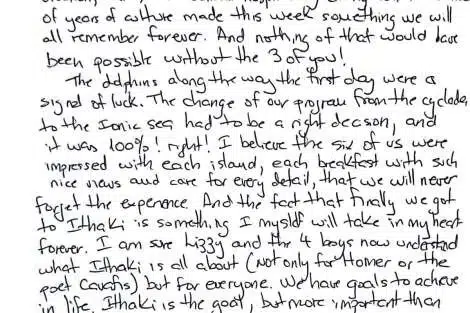 of years of culture made this week something we will
all remember forever. And nothing of that would have
been possible without the 3 of you!
The dolphins along the way the first day were a
signal of luck. The change of our program from the cyclades
to the Ionic sea had to be a right decision, and
it was 100%! right! I believe the six of us were
impressed with each island, each breakfast with such
nice views and care for every detail, that we will never
forget the experience. And the fact that finally we got
to Ithaki is something I myself will take in my heart
forever. I am sure Lizzy and the 4 boys now understand
what Ithaki is all about (not only for Homer or the
poet Cavafis) but for everyone. We have goals to achieve
in life. Ithaki is the goal, but more important than